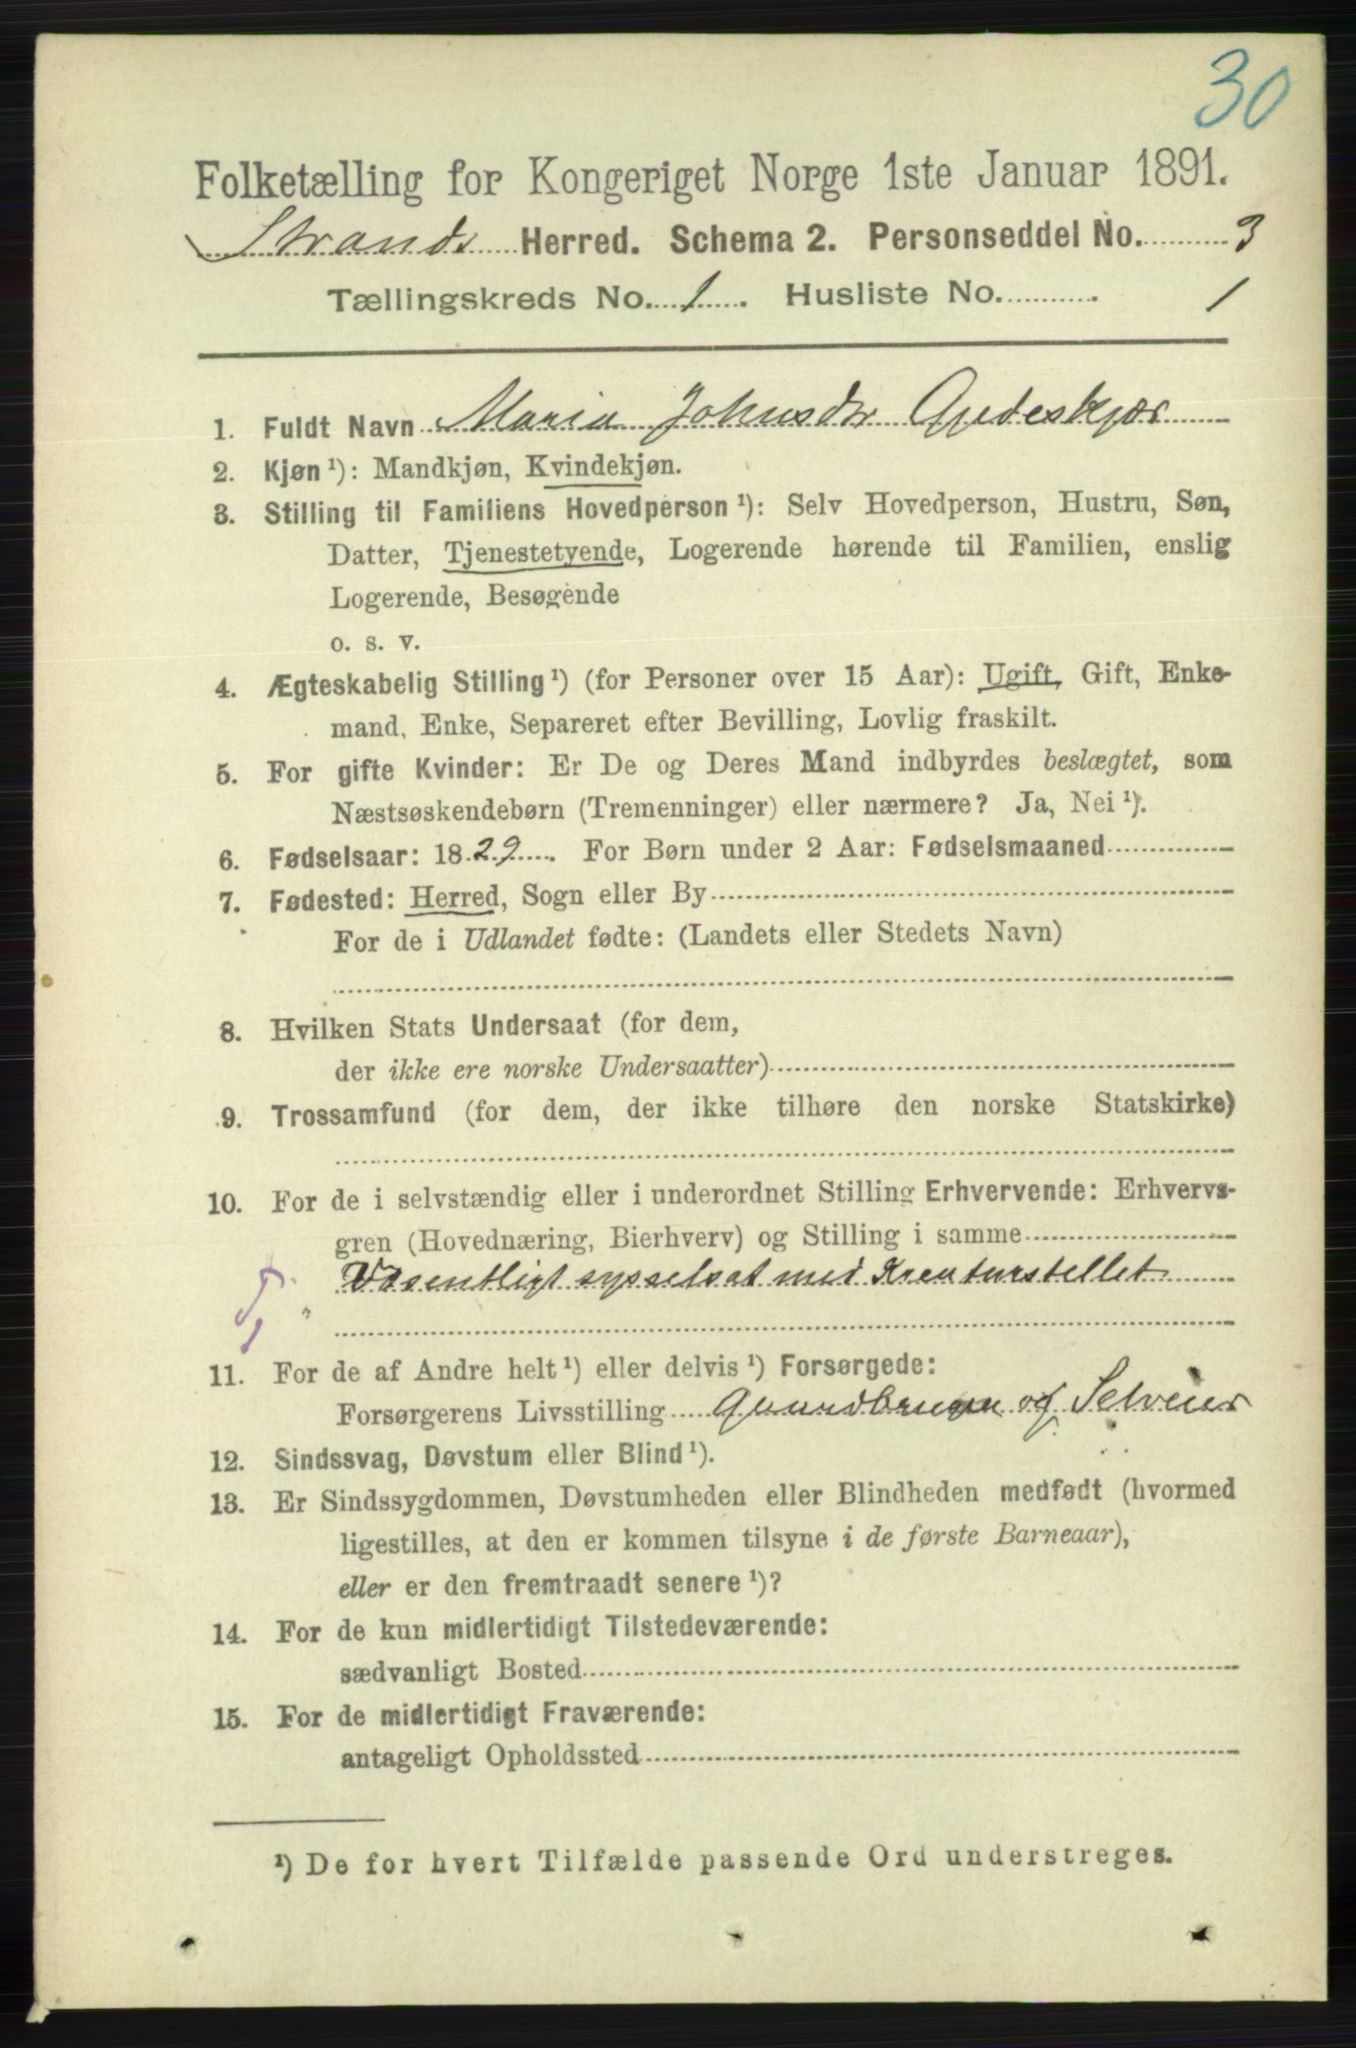 30
Folketælling for Kongeriget Norge 1ste Januar 1891.
Strands Herred. Schema 2. Personseddel No. 3
Tællingskreds No. 1. Husliste No. 1
1. Fuldt Navn Maria Johnsdtr Gjedeskjær
2. Kjøn ¹): Mandkjøn, Kvindekjøn.
3. Stilling til Familiens Hovedperson ¹): Selv Hovedperson, Hustru, Søn,
Datter, Tjenestetyende, Logerende hørende til Familien, enslig
Logerende, Besøgende
o. s. v.
4. Ægteskabelig Stilling ¹) (for Personer over 15 Aar): Ugift, Gift, Enke-
mand, Enke, Separeret efter Bevilling, Lovlig fraskilt.
5. For gifte Kvinder: Er De og Deres Mand indbyrdes beslægtet, som
Næstsøskendebørn (Tremenninger) eller nærmere? Ja, Nei ¹).
6. Fødselsaar: 1829. For Børn under 2 Aar: Fødselsmaaned
7. Fødested: Herred, Sogn eller By
For de i Udlandet fødte: (Landets eller Stedets Navn)
8. Hvilken Stats Undersaat (for dem,
der ikke ere norske Undersaatter)
9. Trossamfund (for dem, der ikke tilhøre den norske Statskirke)
10. For de i selvstændig eller i underordnet Stilling Erhvervende: Erhvervs-
gren (Hovednæring, Bierhverv) og Stilling i samme
Væsentligt sysselsat med Kreaturstellet
11. For de af Andre helt ¹) eller delvis ¹) Forsørgede:
Forsørgerens Livsstilling Gaardbruger og Selveier
12. Sindssvag, Døvstum eller Blind ¹).
13. Er Sindssygdommen, Døvstumheden eller Blindheden medfødt (hvormed
ligestilles, at den er kommen tilsyne i de første Barneaar),
eller er den fremtraadt senere ¹)?
14. For de kun midlertidigt Tilstedeværende:
sædvanligt Bosted
15. For de midlertidigt Fraværende:
antageligt Opholdssted
¹) De for hvert Tilfælde passende Ord understreges.